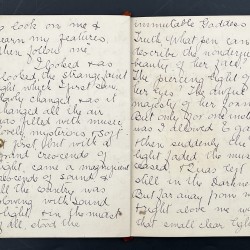 to look on me &
learn my features,
then follow one
I looked & as
looked, the strange faint
light which I first saw,
slowly changed & as it
changed all the air
was filled with music
lovely mysterious & soft
first but with a
grand crescendo of
light, came a magnificent
crescendo of sound &
all the country was
glowing with sound
light. in the midst
of all stood the
immutable Goddess
Truth. What pen can
describe the nondescript
beauty of her face,
The piercing light of
her eyes! The awful
majesty of her form
But only for one moment
was I allowed to gaze
then suddenly the
light faded the music
ceased & I was left
still in the darkness
But far away from me
& high above me
that small clear light